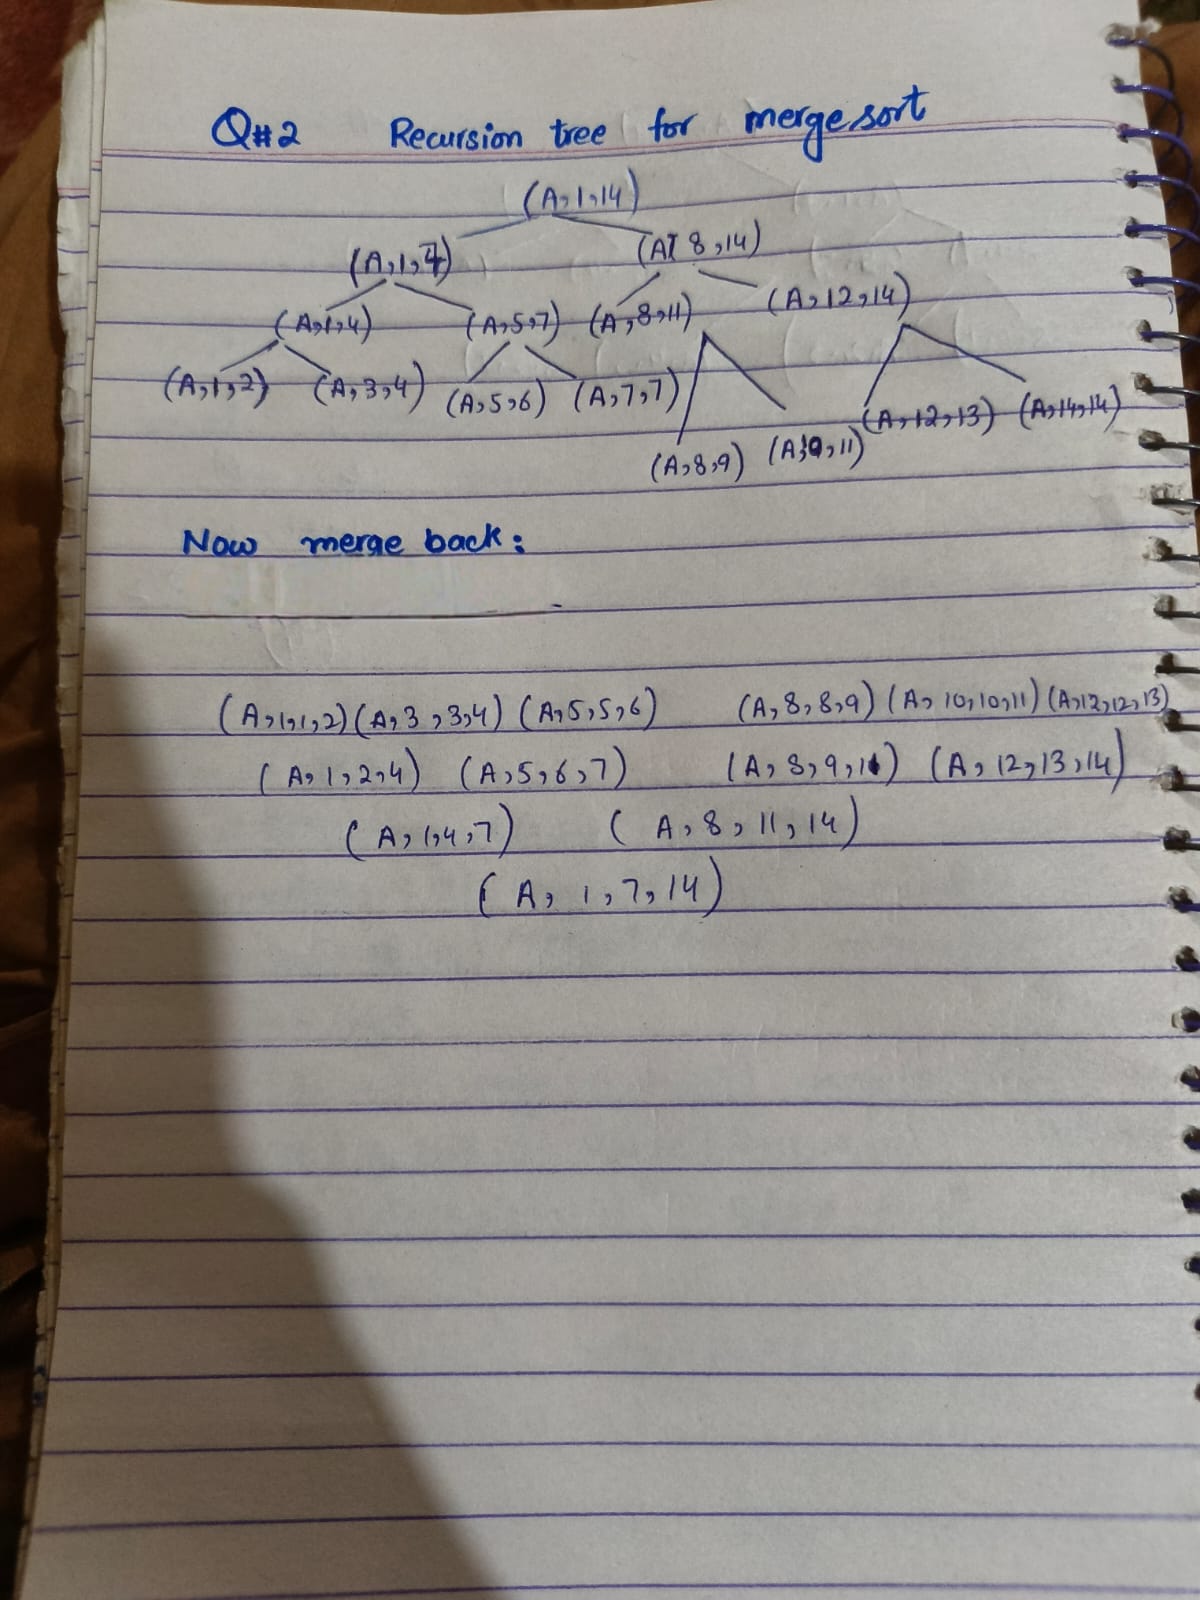 Q#2 Recursion tree for merge sort
(A,1,14)
(A,1,7) (A, 8,14)
(A,1,4) (A,5,7) (A,8,11) (A,12,14)
(A,1,2) (A,3,4) (A,5,6) (A,7,7) (A,12,13) (A,14,14)
(A,8,9) (A, ,11)
Now merge back:
(A,1,1,2) (A,3,3,4) (A,5,5,6) (A,8,8,9) (A,10,10,11) (A,12,12,13)
(A,1,2,4) (A,5,6,7) (A,8,9,11) (A,12,13,14)
(A,1,4,7) (A,8,11,14)
(A, 1,7,14)